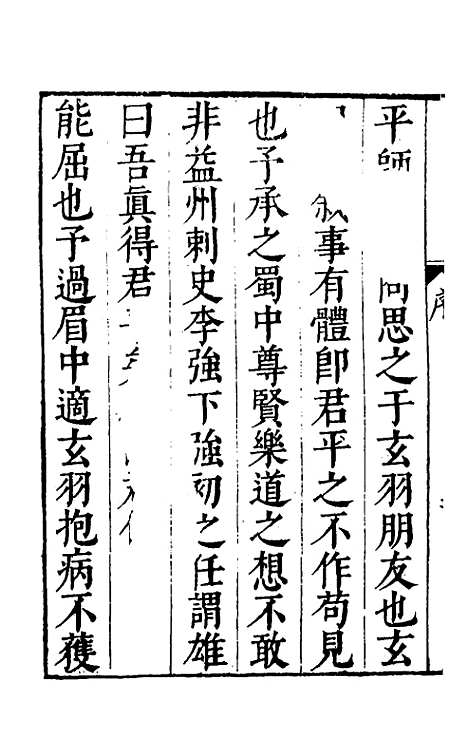 平師 思之于玄羽朋友也玄
叙事有體卽君平之不作苟見
也予承之蜀中尊賢樂道之想不敢
非益州刺史李強下強初之任謂雄
曰吾眞得君
能屈也予過眉中適玄羽抱病不獲